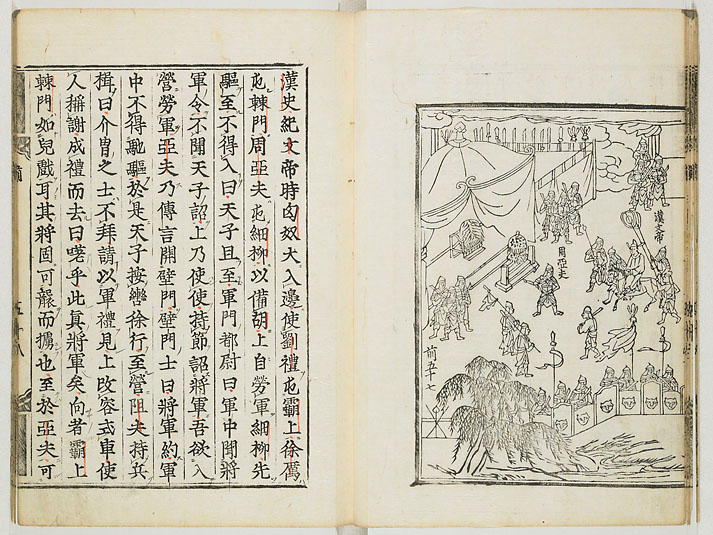 漢文帝
周亞夫
前五十七
漢史紀文帝時匈奴大入邊使劉禮屯霸上徐厲
屯棘門周亞夫屯細柳以備胡上自勞軍細柳先
驅至不得入曰天子且至軍門都尉曰軍中聞將
軍令不聞天子詔上乃使使持節詔將軍吾欲入
營勞軍亞夫乃傳言開壁門壁門士曰將軍約軍
中不得馳驅於是天子按轡徐行至營亞夫持兵
揖曰介冑之士不拜請以軍禮見上改容式車使
人稱謝成禮而去曰嗟乎此真將軍矣向者霸上
棘門如兒戲耳其將固可襲而擄也至於亞夫可